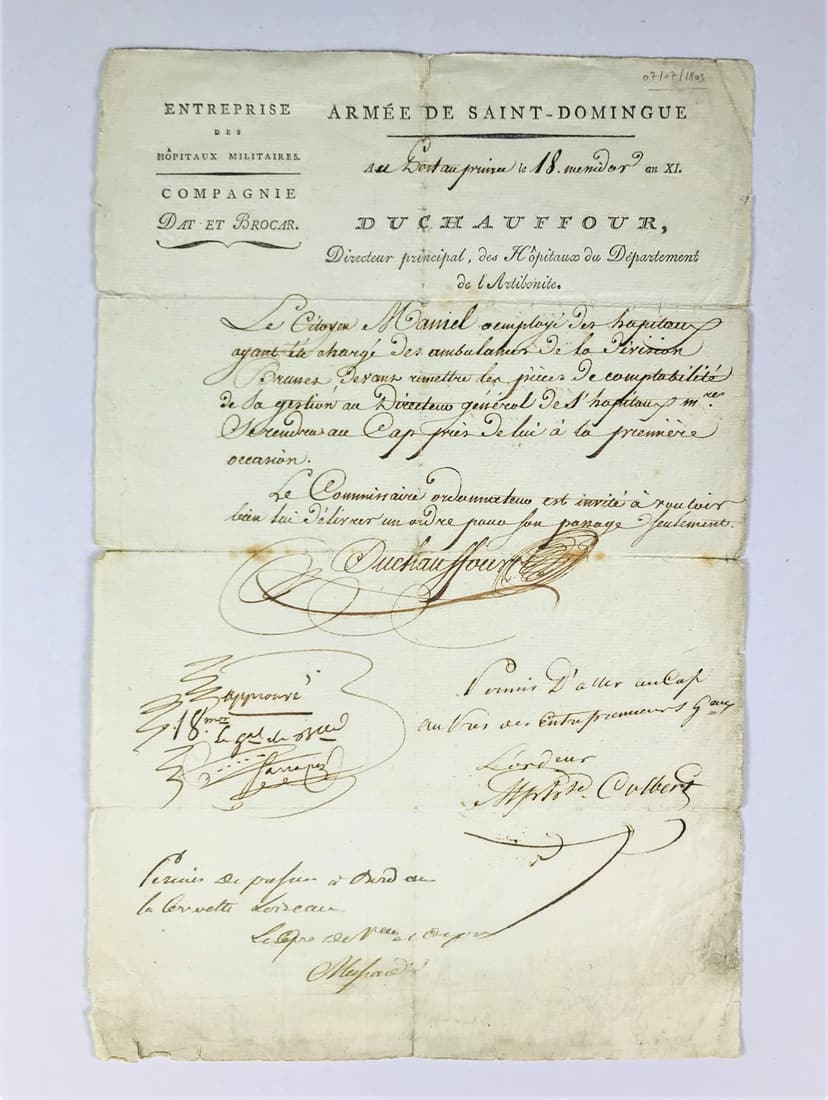 07/07/1803
ENTREPRISE
DES
HÔPITAUX MILITAIRES.
COMPAGNIE
DAT ET BROCAR.
ARMÉE DE SAINT-DOMINGUE
Au Port au prince le 18. messidor an XI.
DUCHAUFFOUR,
Directeur principal, des Hôpitaux du Département
de l'Artibonite.
Le Citoyen Maniel employé des hôpitaux
ayant été chargé des ambulances de la division
Brunet, devant remettre les pièces de comptabilité
de sa gestion au Directeur général des hôpitaux mres
Se rendra au Cap près de lui à la première
occasion.
Le Commissaire ordonnateur est invité à vouloir
bien lui délivrer un ordre pour son passage seulement.
Duchauffour
approuvé
18. mor
le gal de
Permis D'aller au Cap
au des Entrepreneurs Gaux
L'ordeur
Colbert
Permis de passer à Bord de
la Corvette Loiseau
Le de